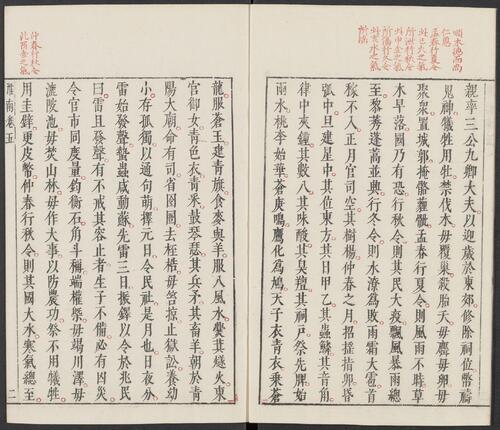 順木德而尚
仁恩
孟春行夏令
此巳火之氣
所泄行秋令
此申金之氣
所傷行冬令
此亥水之氣
所淫
親率三公九卿大夫以迎歲於東郊修除祠位幣禱
鬼神犧牲用牡禁伐木毋覆巢殺胎夭毋麛毋卵毋
聚衆置城郭掩骼薶骴孟春行夏令則風雨不時草
木早落國乃有恐行秋令則其民大疫飄風暴雨總
至黎莠蓬蒿並興行冬令則水潦為敗雨霜大雹首
稼不入正月官司空其樹楊仲春之月招搖指卯昏
弧中旦建星中其位東方其日甲乙其蟲鱗其音角
律中夾鐘其數八其味酸其臭羶其祀戶祭先脾始
雨水桃李始華蒼庚鳴鷹化為鳩天子衣青衣乘蒼
仲春行秋令
此酉金之氣
龍服蒼玉建青旗食麥與羊服八風水爨其燧火東
官御女青色衣青采鼓琴瑟其兵矛其畜羊朝於青
陽太廟命有司省囹圄去桎梏毋笞掠止獄訟養幼
小存孤獨以通句萌擇元日令民社是月也日夜分
雷始發聲蟄蟲咸動蘇先雷三日振鐸以令於兆民
曰雷且發聲有不戒其容止者生子不備必有凶災
令官市同度量鈞衡石角斗稱端權槩毋竭川澤毋
漉陂池毋焚山林毋作大事以妨農功祭不用犧牲
用圭璧更皮幣仲春行秋令則其國大水寒氣總至
淮南卷五 二